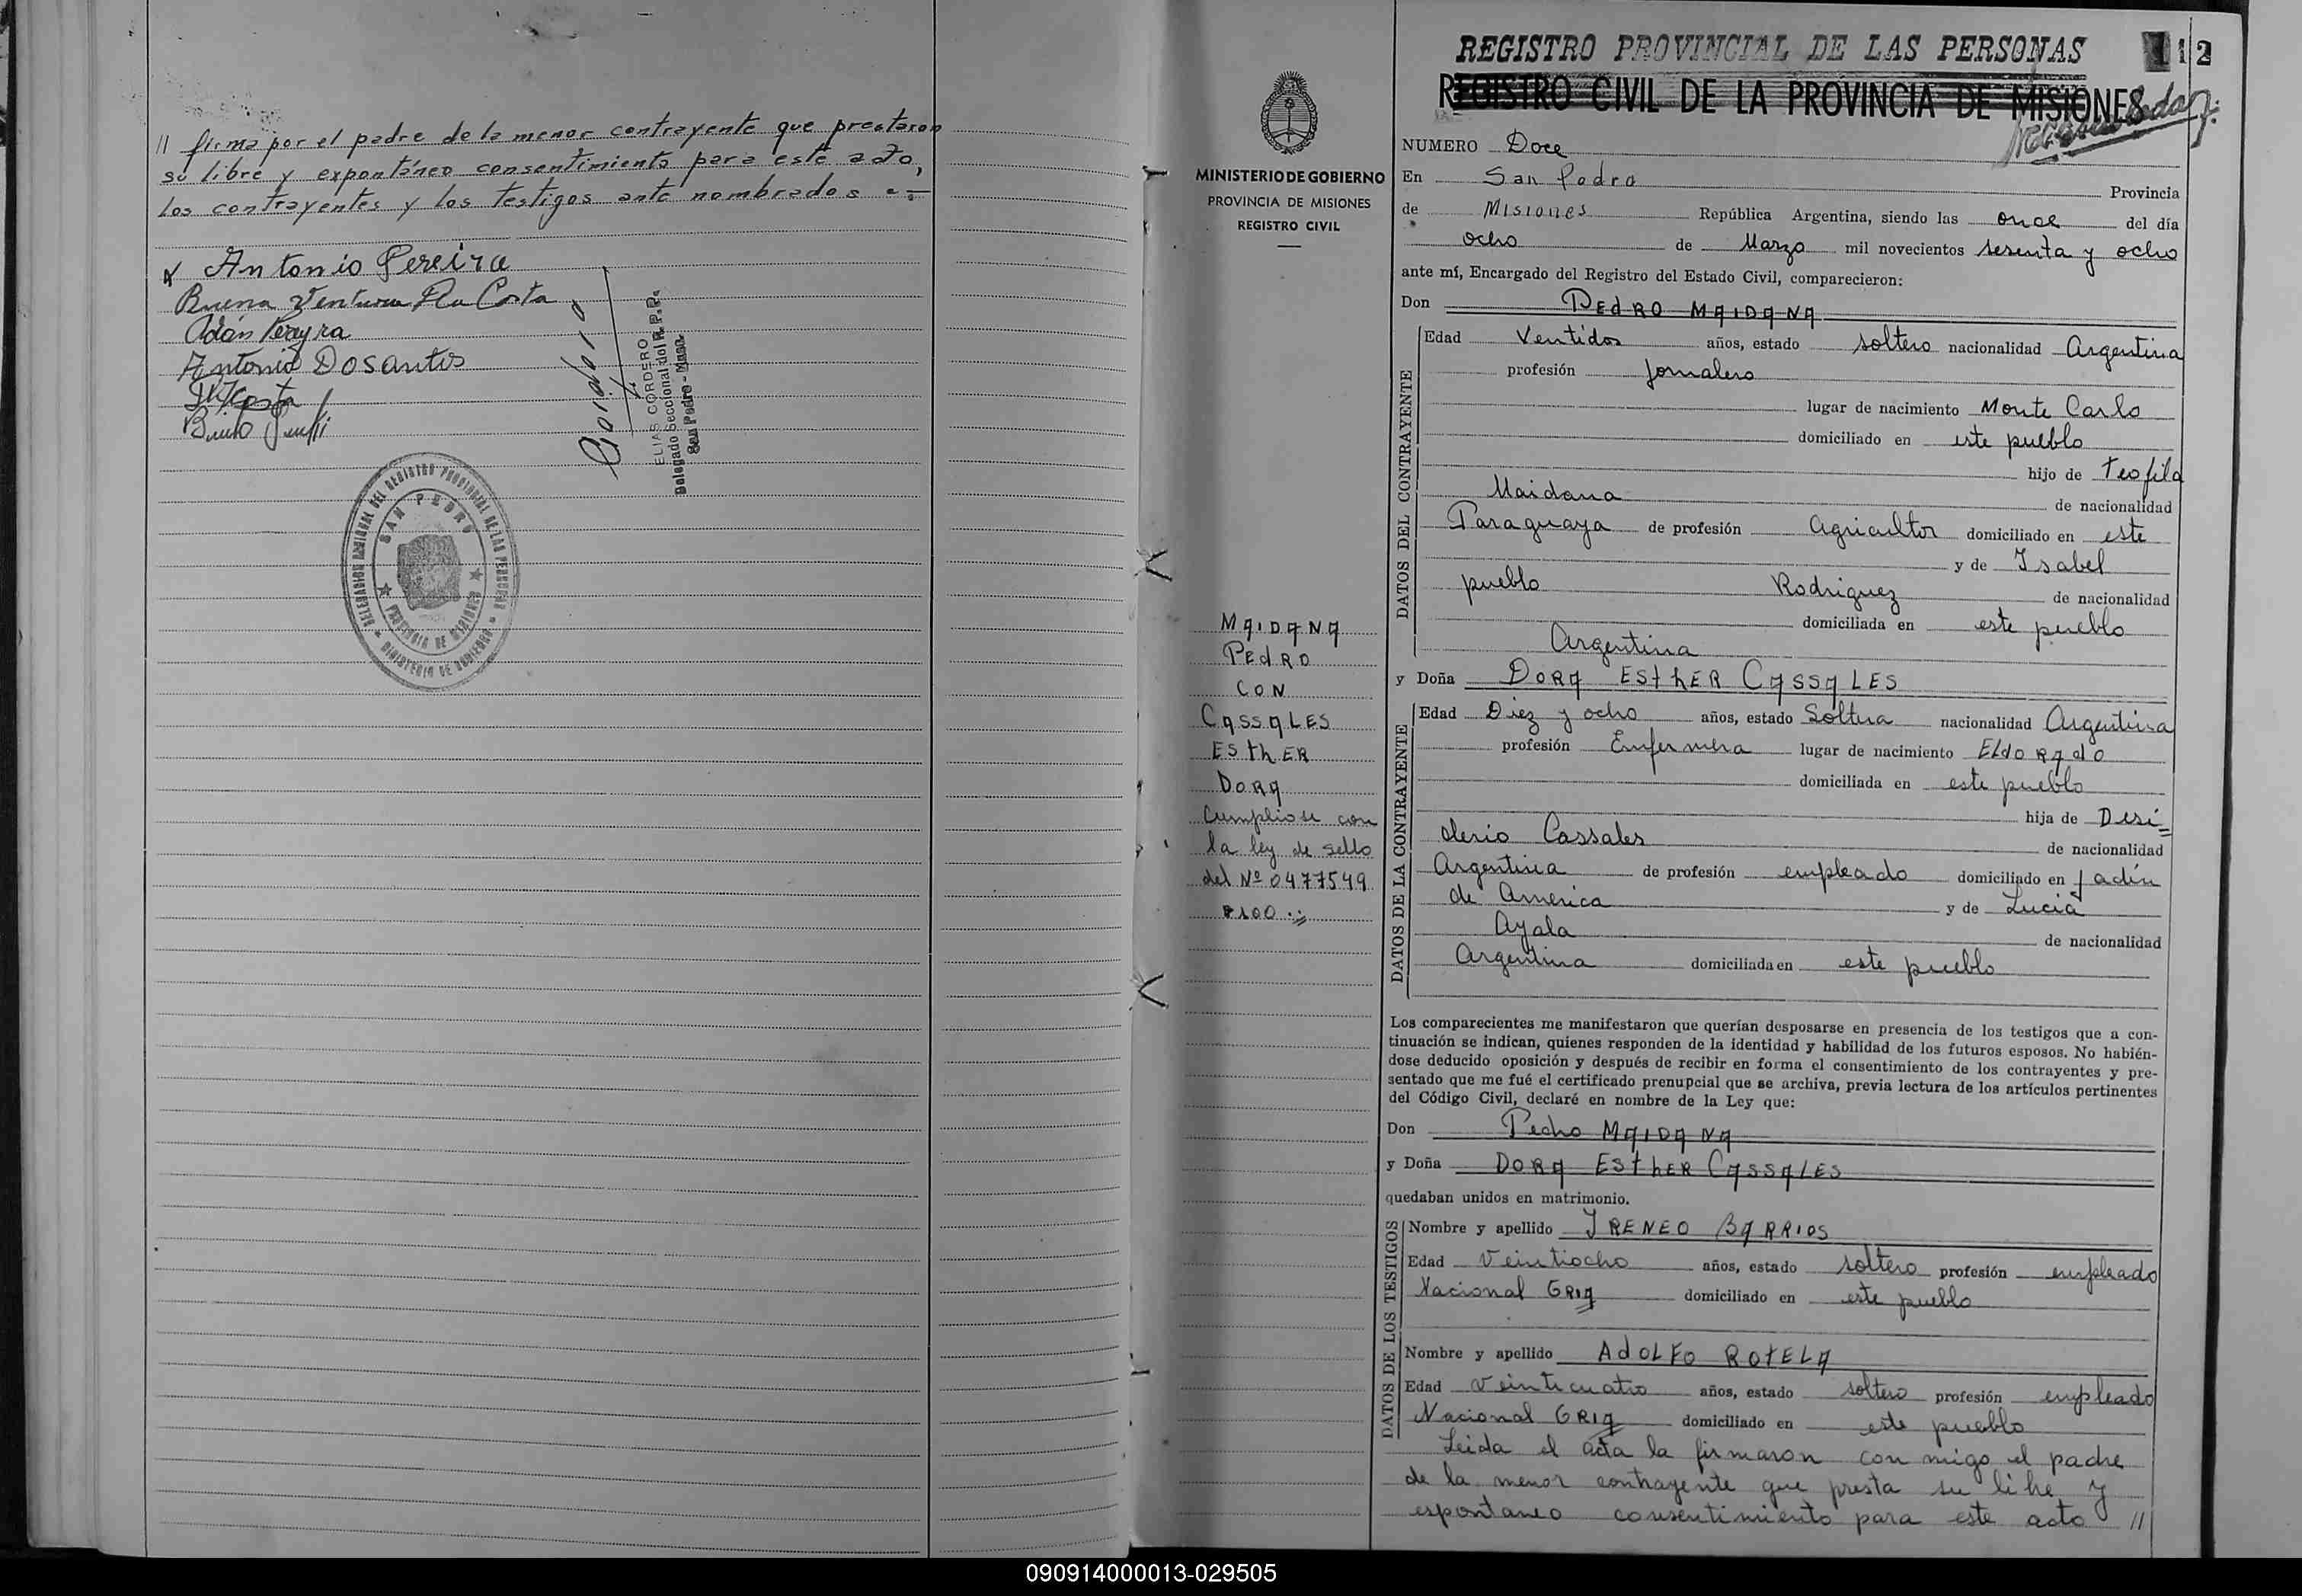 // firma por el padre de la menor contrayente que prestaron
su libre y expontáneo consentimiento para este acto,
los contrayentes y los testigos ante nombrados.-
Antonio Pereira
Buena Ventura Da Costa
Adán Pereyra
Antonio Dosantos
Costa
Bruno
ELIAS CORDERO
Delegado Seccional del R. P. P.
San Pedro - Mnes.
SAN PEDRO
PROVINCIA DE MISIONES
MINISTERIO DE GOBIERNO
REGISTRO PROVINCIAL DE LAS PERSONAS
12
REGISTRO CIVIL DE LA PROVINCIA DE MISIONES
MINISTERIO DE GOBIERNO
PROVINCIA DE MISIONES
REGISTRO CIVIL
MAIDANA
PEdRO
CON
CASSALES
ESthER
DORA
Cumpliose con
la ley de sello
del Nº 0477549
$100.=
NUMERO Doce
En San Pedro Provincia
de Misiones República Argentina, siendo las once del día
ocho de Marzo mil novecientos sesenta y ocho
ante mí, Encargado del Registro del Estado Civil, comparecieron:
Don PEdRO MAIDANA
DATOS DEL CONTRAYENTE
Edad Ventidos años, estado soltero nacionalidad Argentina
profesión Jornalero
lugar de nacimiento Monte Carlo
domiciliado en este pueblo
hijo de Teofila
Maidana de nacionalidad
Paraguaya de profesión Agricultor domiciliado en este
y de Isabel
pueblo Rodriguez de nacionalidad
domiciliada en este pueblo
Argentina
y Doña DORA ESthER CASSALES
DATOS DE LA CONTRAYENTE
Edad Diez y ocho años, estado Soltera nacionalidad Argentina
profesión Enfermera lugar de nacimiento ELdORAdO
domiciliada en este pueblo
hija de Desi=
derio Cassales de nacionalidad
Argentina de profesión empleado domiciliado en Jadín
de America y de Lucia
Ayala de nacionalidad
Argentina domiciliada en este pueblo
Los comparecientes me manifestaron que querían desposarse en presencia de los testigos que a con-
tinuación se indican, quienes responden de la identidad y habilidad de los futuros esposos. No habién-
dose deducido oposición y después de recibir en forma el consentimiento de los contrayentes y pre-
sentado que me fué el certificado prenupcial que se archiva, previa lectura de los artículos pertinentes
del Código Civil, declaré en nombre de la Ley que:
Don Pedro MAIDANA
y Doña DORA ESthER CASSALES
quedaban unidos en matrimonio.
DATOS DE LOS TESTIGOS
Nombre y apellido IRENEO BARRIOS
Edad Veintiocho años, estado soltero profesión empleado
Nacional GRIA domiciliado en este pueblo
Nombre y apellido AdOLFO ROtELA
Edad Veinticuatro años, estado soltero profesión empleado
Nacional GRIA domiciliado en este pueblo
Leida el acta la firmaron con migo el padre
de la menor contrayente que presta su libre y
espontaneo consentimiento para este acto //
090914000013-029505